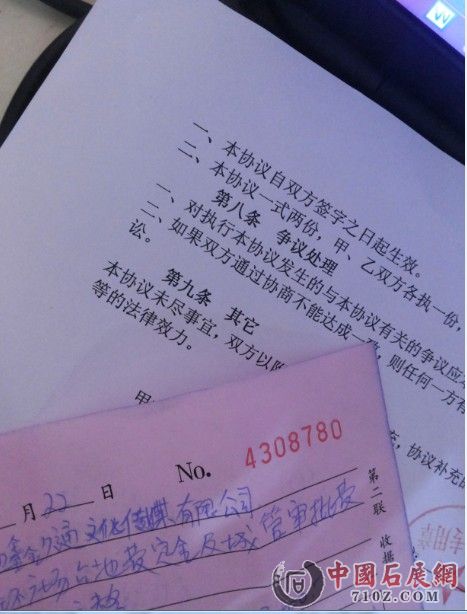 一、本协议自双方签字之日起生效。
二、本协议一式两份，甲、乙双方各执一份，
第八条 争议处理
一、对执行本协议发生的与本协议有关的争议应
二、如果双方通过协商不能达成一致，则任何一方有
讼。
第九条 其它
本协议未尽事宜，双方以
充，协议补充的
等的法律效力。
甲
No. 4308780
月 22 日
通文化传媒有限公司
场台地费定金及城管审批费
第二联 收据
专用章
中國石展網
710Z.COM